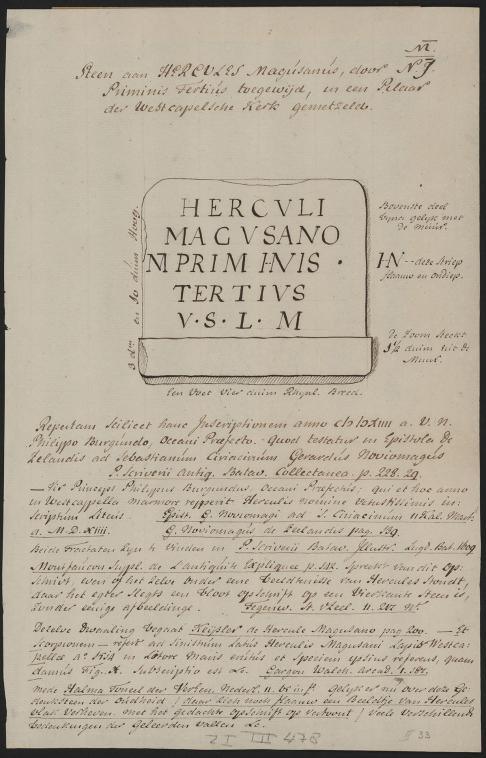 VI.
Nº J.
Steen aan HERCULES Magusanus, door
Priminis Tertius toegewijd, in een Pilaar
der Westcapelsche Kerk gemetzeld.
HERCVLI
MAGVSANO
M PRIMHNIS ·
TERTIVS
V·S·L·M
3 dm en 10 duim Hoog.
Bovenste deel
bijna gelijk met
de muur.
HN -- deze Streep
flaauw en ondiep.
De Zoom steekt
3 1/2 duim uit de
Muur.
Een Voet Vier duim Rhynl. Breed.
Repertam scilicet hanc Inscriptionem anno a. V. n.
Philippo Burgundo, Oceani Præfecto. Quod testatur in Epistola de
Zelandis ad Sebastianum Ciriacinum Gerardus Noviomagus
P. Scriverii Antiq. Batav. Collectanea. p. 228. 29.
— Vir Princeps Philippus Burgundus, Oceani Præfectus; qui et hoc anno
in Westcappella marmor repperit Herculis nomine vetustissimis in-
scriptum literis Epist. G. Noviomagi ad S. Ciriacinum 11 Kal. Mart.
a. M.D.XIIII. G. Noviomagus de Zeelandis pag. 139.
Beide Tractaten zijn te vinden in P. Scriverii Batav. Illustr. Lugd. Bat. 1609
Montfaucon Suppl. de L'antiquité Expliquée p. Spreekt van dit Op-
schrift, wen of het zelve onder eene beeldtenisse van Hercules stondt,
daar het egter slegts een bloot opschrift op een Vierkante Steen is,
zonder eenige afbeeldinge.
Dezelve Dwaaling begaat Keijsler de Hercule Magusano pag 200. — Et
Scorpionem — refert ad sinistrum Latus Herculis Magusani Lapis Westca-
pellæ aº 1514 in Litore Maris erutus et Speciem ipsius referens, quem
damus Fig. X. Subscriptio est &c. Gargon Walch. Arcad. 1.
mede Halma Toneel der Verëen. Nederl. Gelijk er nu over deze Ge-
denksteen der Oudheid / daar zich noch flaauw een Beeldje van Hercules
vlak verheven met het gedachte opschrift op vertoont / veele verschillende
bedenkingen der Geleerden vallen &c.
ZI III 478
II 33